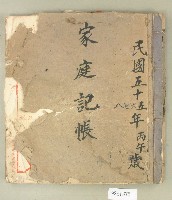 民國五十五年 丙午歲
家庭記帳